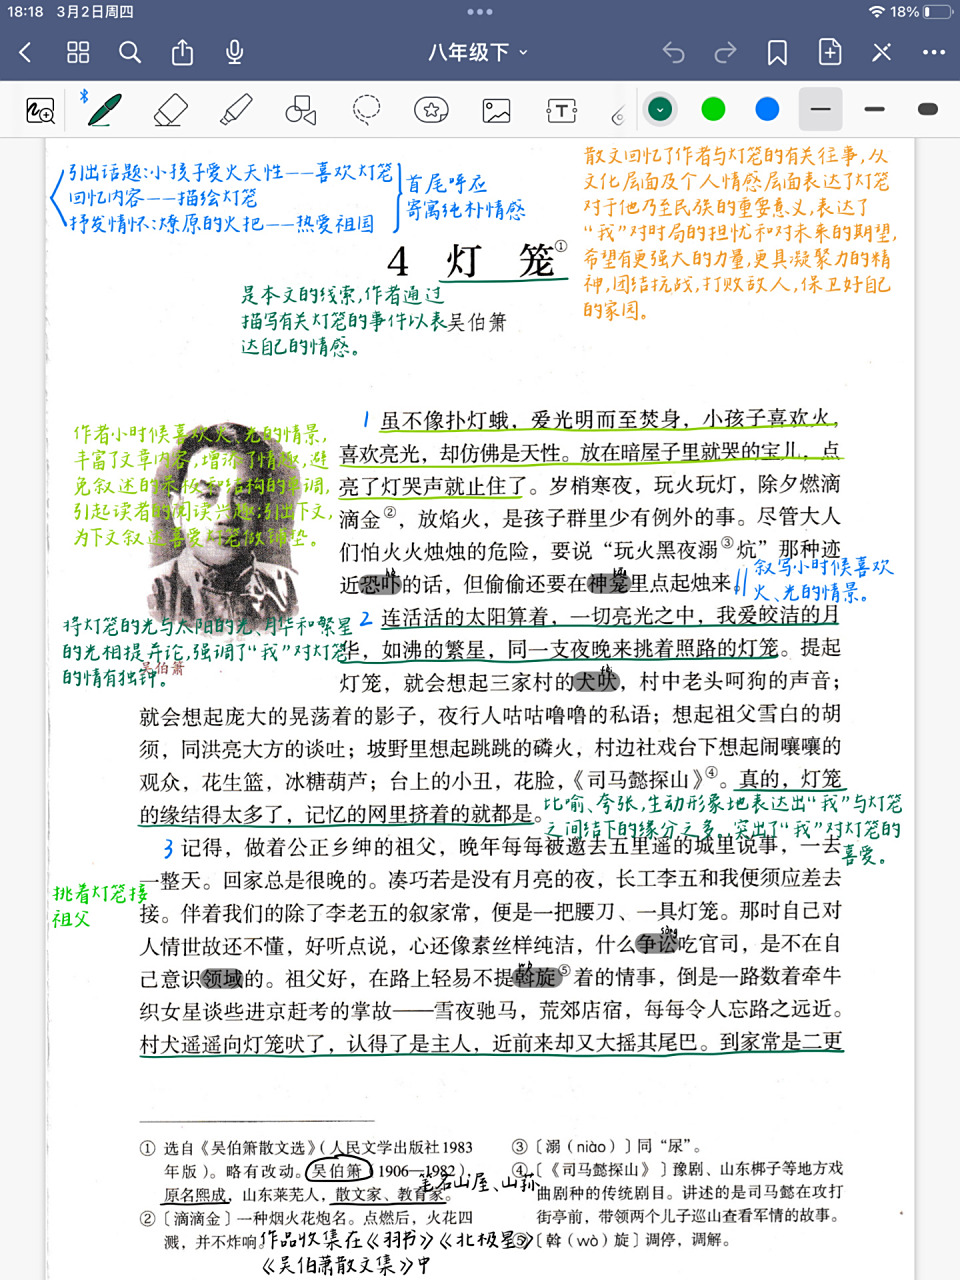 18:18 3月2日周四
18%
八年级下
引出话题:小孩子爱火天性——喜欢灯笼
回忆内容——描绘灯笼
抒发情怀:燎原的火把——热爱祖国
首尾呼应
寄寓纯朴情感
散文回忆了作者与灯笼的有关往事,从
文化层面及个人情感层面表达了灯笼
对于他乃至民族的重要意义,表达了
“我”对时局的担忧和对未来的期望,
希望有更强大的力量,更具凝聚力的精
神,团结抗战,打败敌人,保卫好自己
的家园。
4 灯 笼①
是本文的线索,作者通过
描写有关灯笼的事件以表
达自己的情感。
吴伯箫
作者小时候喜欢火、光的情景,
丰富了文章内容,增添了情趣,避
免叙述的呆板和结构的单调,
引起读者的阅读兴趣;引出下文,
为下文叙述喜爱灯笼做铺垫。
1 虽不像扑灯蛾，爱光明而至焚身，小孩子喜欢火，
喜欢亮光，却仿佛是天性。放在暗屋子里就哭的宝儿，点
亮了灯哭声就止住了。岁梢寒夜，玩火玩灯，除夕燃滴
滴金②，放焰火，是孩子群里少有例外的事。尽管大人
们怕火火烛烛的危险，要说“玩火黑夜溺③炕”那种迹
近恐吓的话，但偷偷还要在神龛里点起烛来。
叙写小时候喜欢
火、光的情景。
将灯笼的光与太阳的光、月华和繁星
的光相提并论,强调了“我”对灯笼
的情有独钟。
吴伯箫
2 连活活的太阳算着，一切亮光之中，我爱皎洁的月
华，如沸的繁星，同一支夜晚来挑着照路的灯笼。提起
灯笼，就会想起三家村的犬吠，村中老头呵狗的声音；
就会想起庞大的晃荡着的影子，夜行人咕咕噜噜的私语；想起祖父雪白的胡
须，同洪亮大方的谈吐；坡野里想起跳跳的磷火，村边社戏台下想起闹嚷嚷的
观众，花生篮，冰糖葫芦；台上的小丑，花脸，《司马懿探山》④。真的，灯笼
的缘结得太多了，记忆的网里挤着的就都是。
比喻、夸张,生动形象地表达出“我”与灯笼
之间结下的缘分之多,突出了“我”对灯笼的
喜爱。
3 记得，做着公正乡绅的祖父，晚年每每被邀去五里遥的城里说事，一去
一整天。回家总是很晚的。凑巧若是没有月亮的夜，长工李五和我便须应差去
接。伴着我们的除了李老五的叙家常，便是一把腰刀、一具灯笼。那时自己对
人情世故还不懂，好听点说，心还像素丝样纯洁，什么争讼吃官司，是不在自
己意识领域的。祖父好，在路上轻易不提斡旋⑤着的情事，倒是一路数着牵牛
织女星谈些进京赶考的掌故——雪夜驰马，荒郊店宿，每每令人忘路之远近。
村犬遥遥向灯笼吠了，认得了是主人，近前来却又大摇其尾巴。到家常是二更
挑着灯笼接
祖父
sòng
① 选自《吴伯箫散文选》（人民文学出版社1983
年版）。略有改动。吴伯箫（1906—1982），
原名熙成，山东莱芜人，散文家、教育家。
笔名山屋、山荪
② 〔滴滴金〕一种烟火花炮名。点燃后，火花四
溅，并不炸响。
作品收集在《羽书》《北极星》
《吴伯萧散文集》中
③ 〔溺（niào）〕同“尿”。
④ 〔《司马懿探山》〕豫剧、山东梆子等地方戏
曲剧种的传统剧目。讲述的是司马懿在攻打
街亭前，带领两个儿子巡山查看军情的故事。
⑤ 〔斡（wò）旋〕调停，调解。